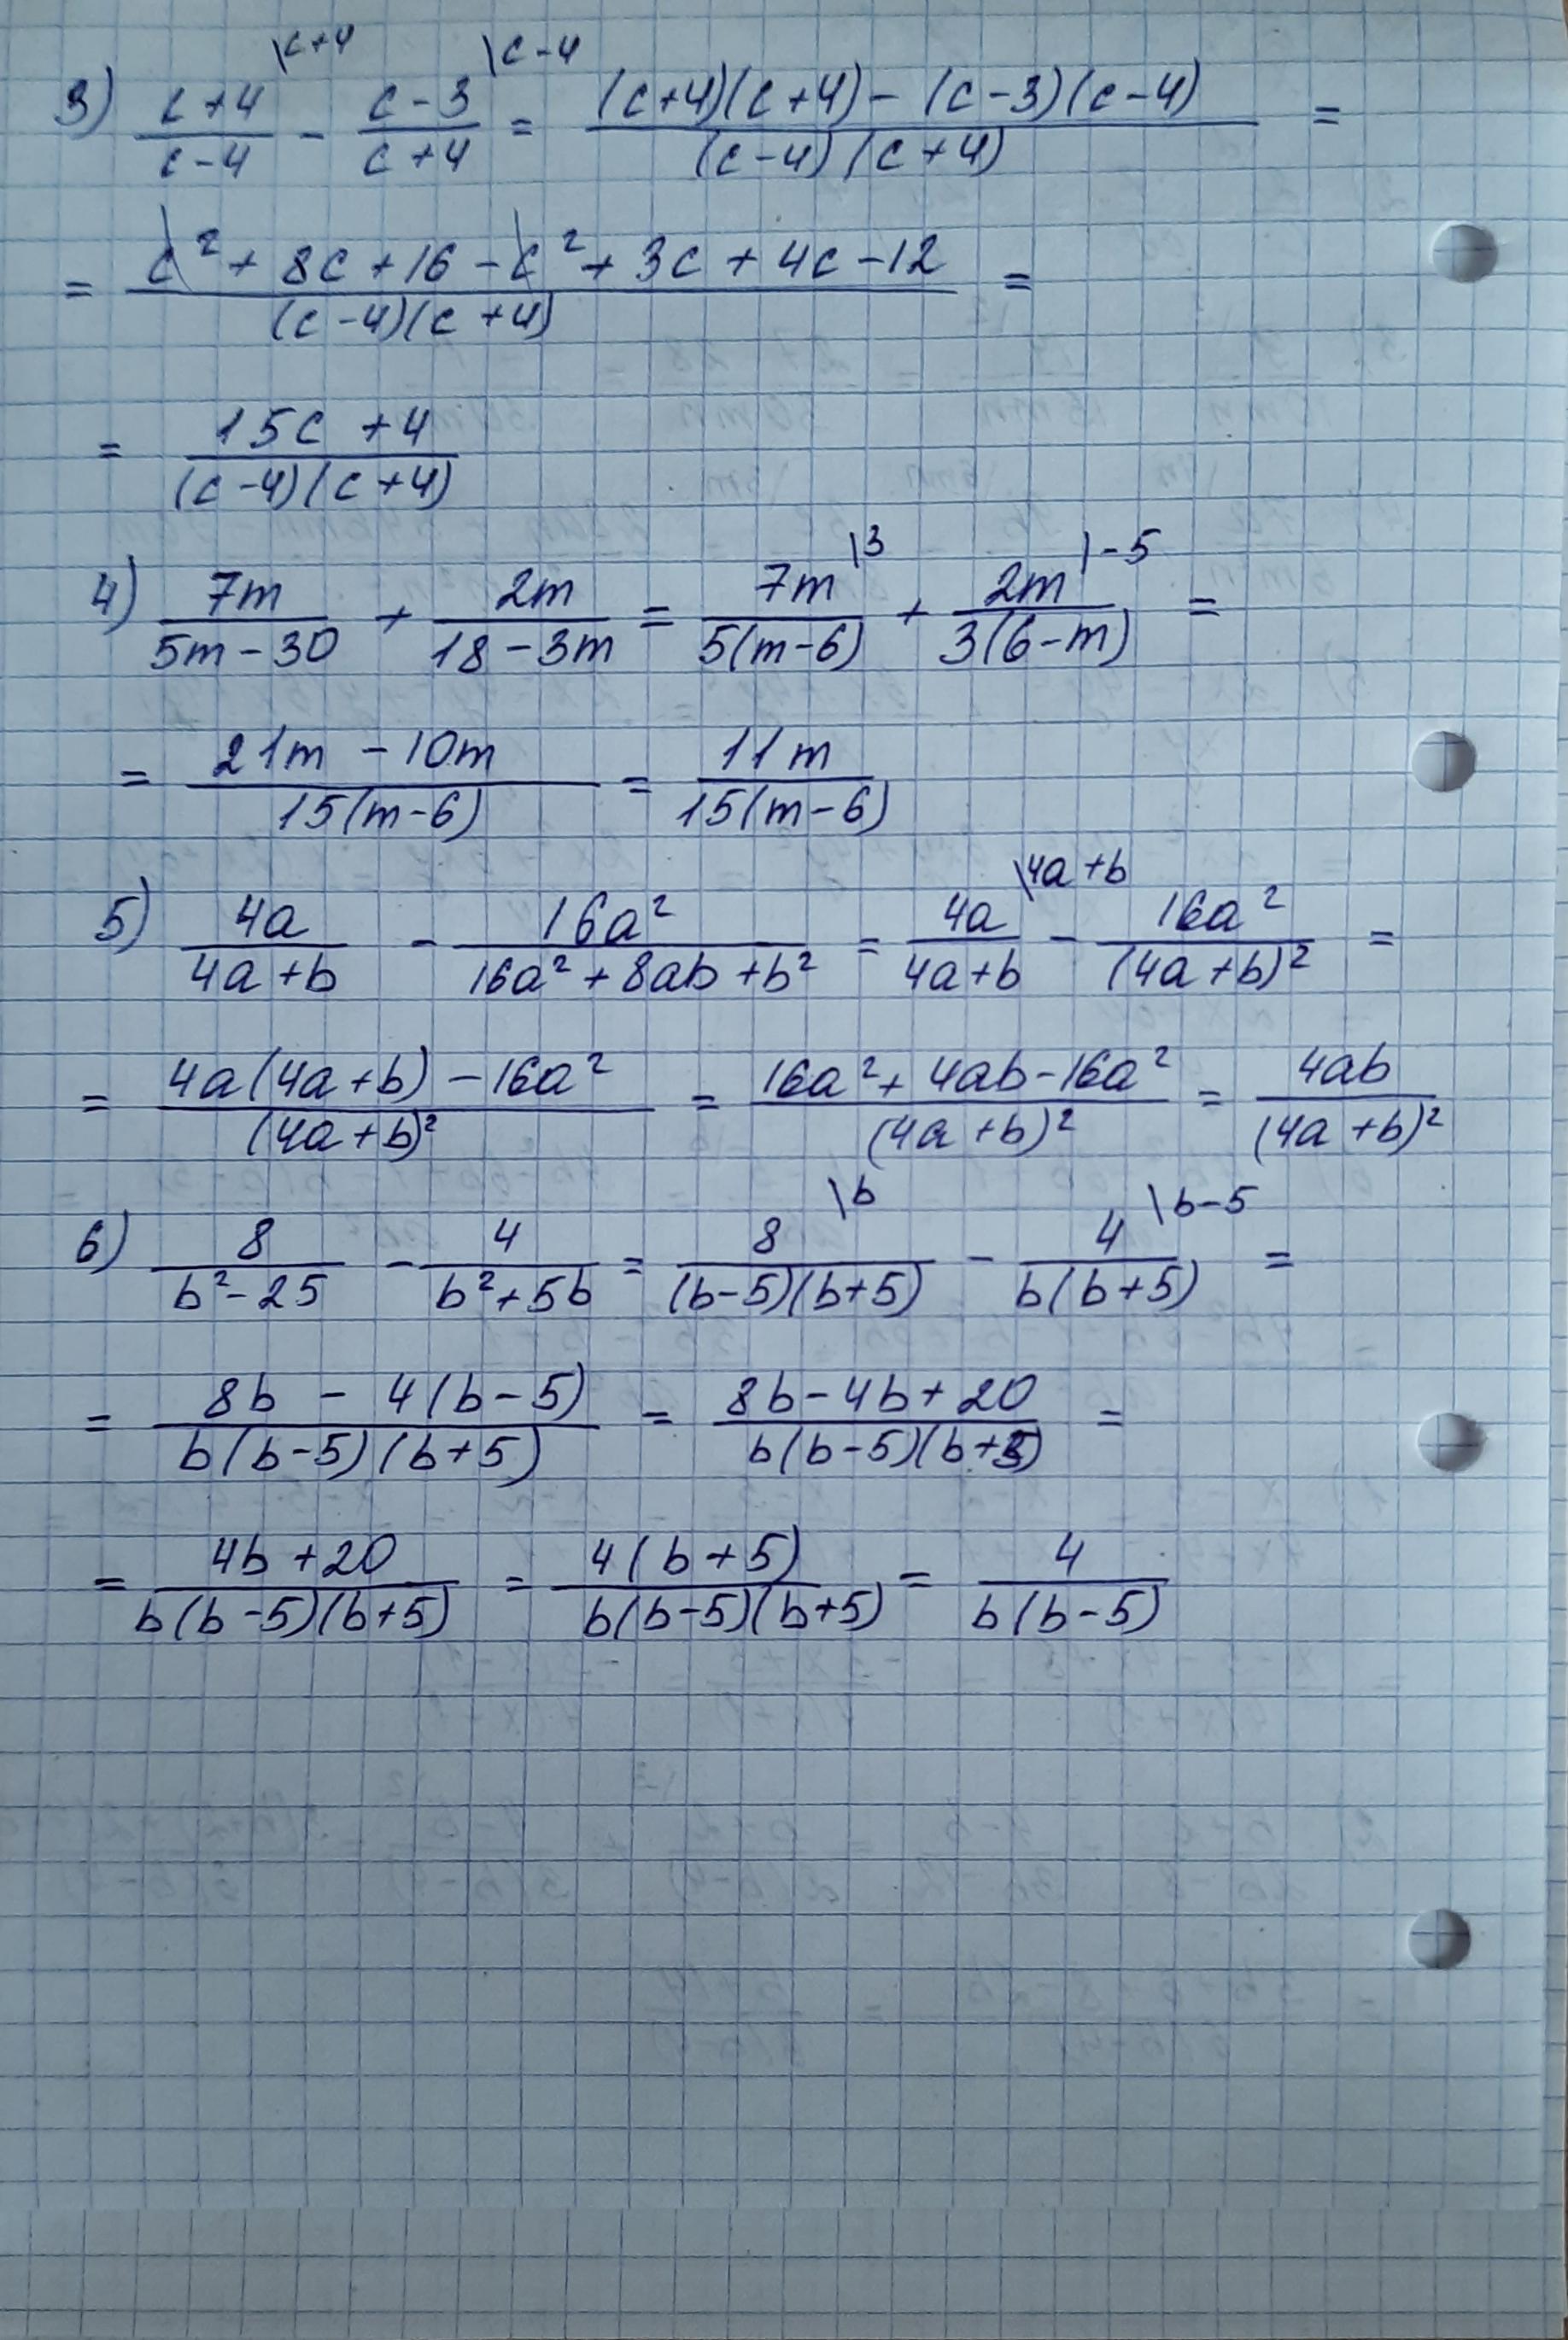 3) \frac{c+4}{c-4}^{\c+4} - \frac{c-3}{c+4}^{\c-4} = \frac{(c+4)(c+4)-(c-3)(c-4)}{(c-4)(c+4)} =
= \frac{c^2+8c+16-c^2+3c+4c-12}{(c-4)(c+4)} =
= \frac{15c+4}{(c-4)(c+4)}
4) \frac{7m}{5m-30} + \frac{2m}{18-3m} = \frac{7m}{5(m-6)}^{\3} + \frac{2m}{3(6-m)}^{\-5} =
= \frac{21m-10m}{15(m-6)} = \frac{11m}{15(m-6)}
5) \frac{4a}{4a+b} - \frac{16a^2}{16a^2+8ab+b^2} = \frac{4a}{4a+b}^{\4a+b} - \frac{16a^2}{(4a+b)^2} =
= \frac{4a(4a+b)-16a^2}{(4a+b)^2} = \frac{16a^2+4ab-16a^2}{(4a+b)^2} = \frac{4ab}{(4a+b)^2}
6) \frac{8}{b^2-25} - \frac{4}{b^2+5b} = \frac{8}{(b-5)(b+5)}^{\b} - \frac{4}{b(b+5)}^{\b-5} =
= \frac{8b-4(b-5)}{b(b-5)(b+5)} = \frac{8b-4b+20}{b(b-5)(b+5)} =
= \frac{4b+20}{b(b-5)(b+5)} = \frac{4(b+5)}{b(b-5)(b+5)} = \frac{4}{b(b-5)}